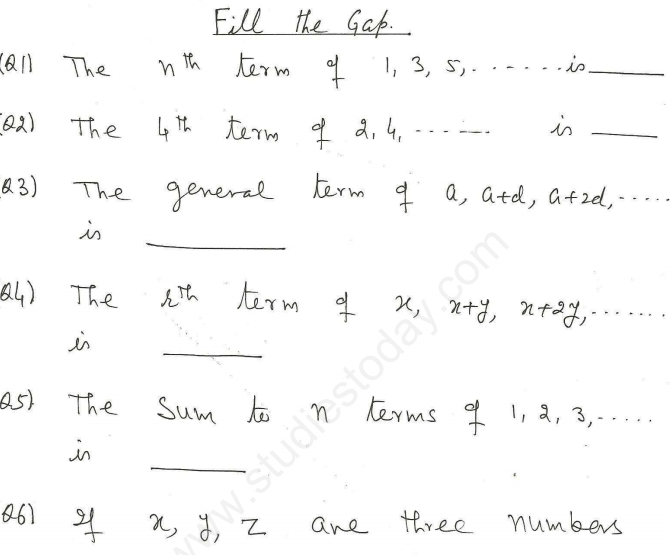 Fill the Gap.
(Q1) The nth term of 1, 3, 5,....... is ______
(Q2) The 4th term of 2, 4, ------- is ______
(Q3) The general term of a, a+d, a+2d,-----
is ________
Q4) The rth term of x, x+y, x+2y,.......
is ______
Q5) The Sum to n terms of 1, 2, 3,......
is ______
Q6) If x, y, z are three numbers
www.studiestoday.com